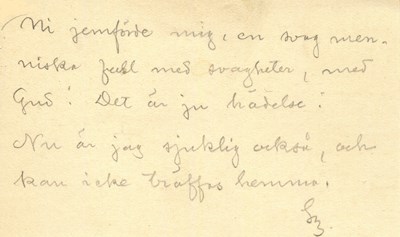 Ni jemförde mig, en svag men-
niska full med svagheter, med
Gud! Det är ju hädelse!
Nu är jag sjuklig också, och
kan icke träffas hemma.